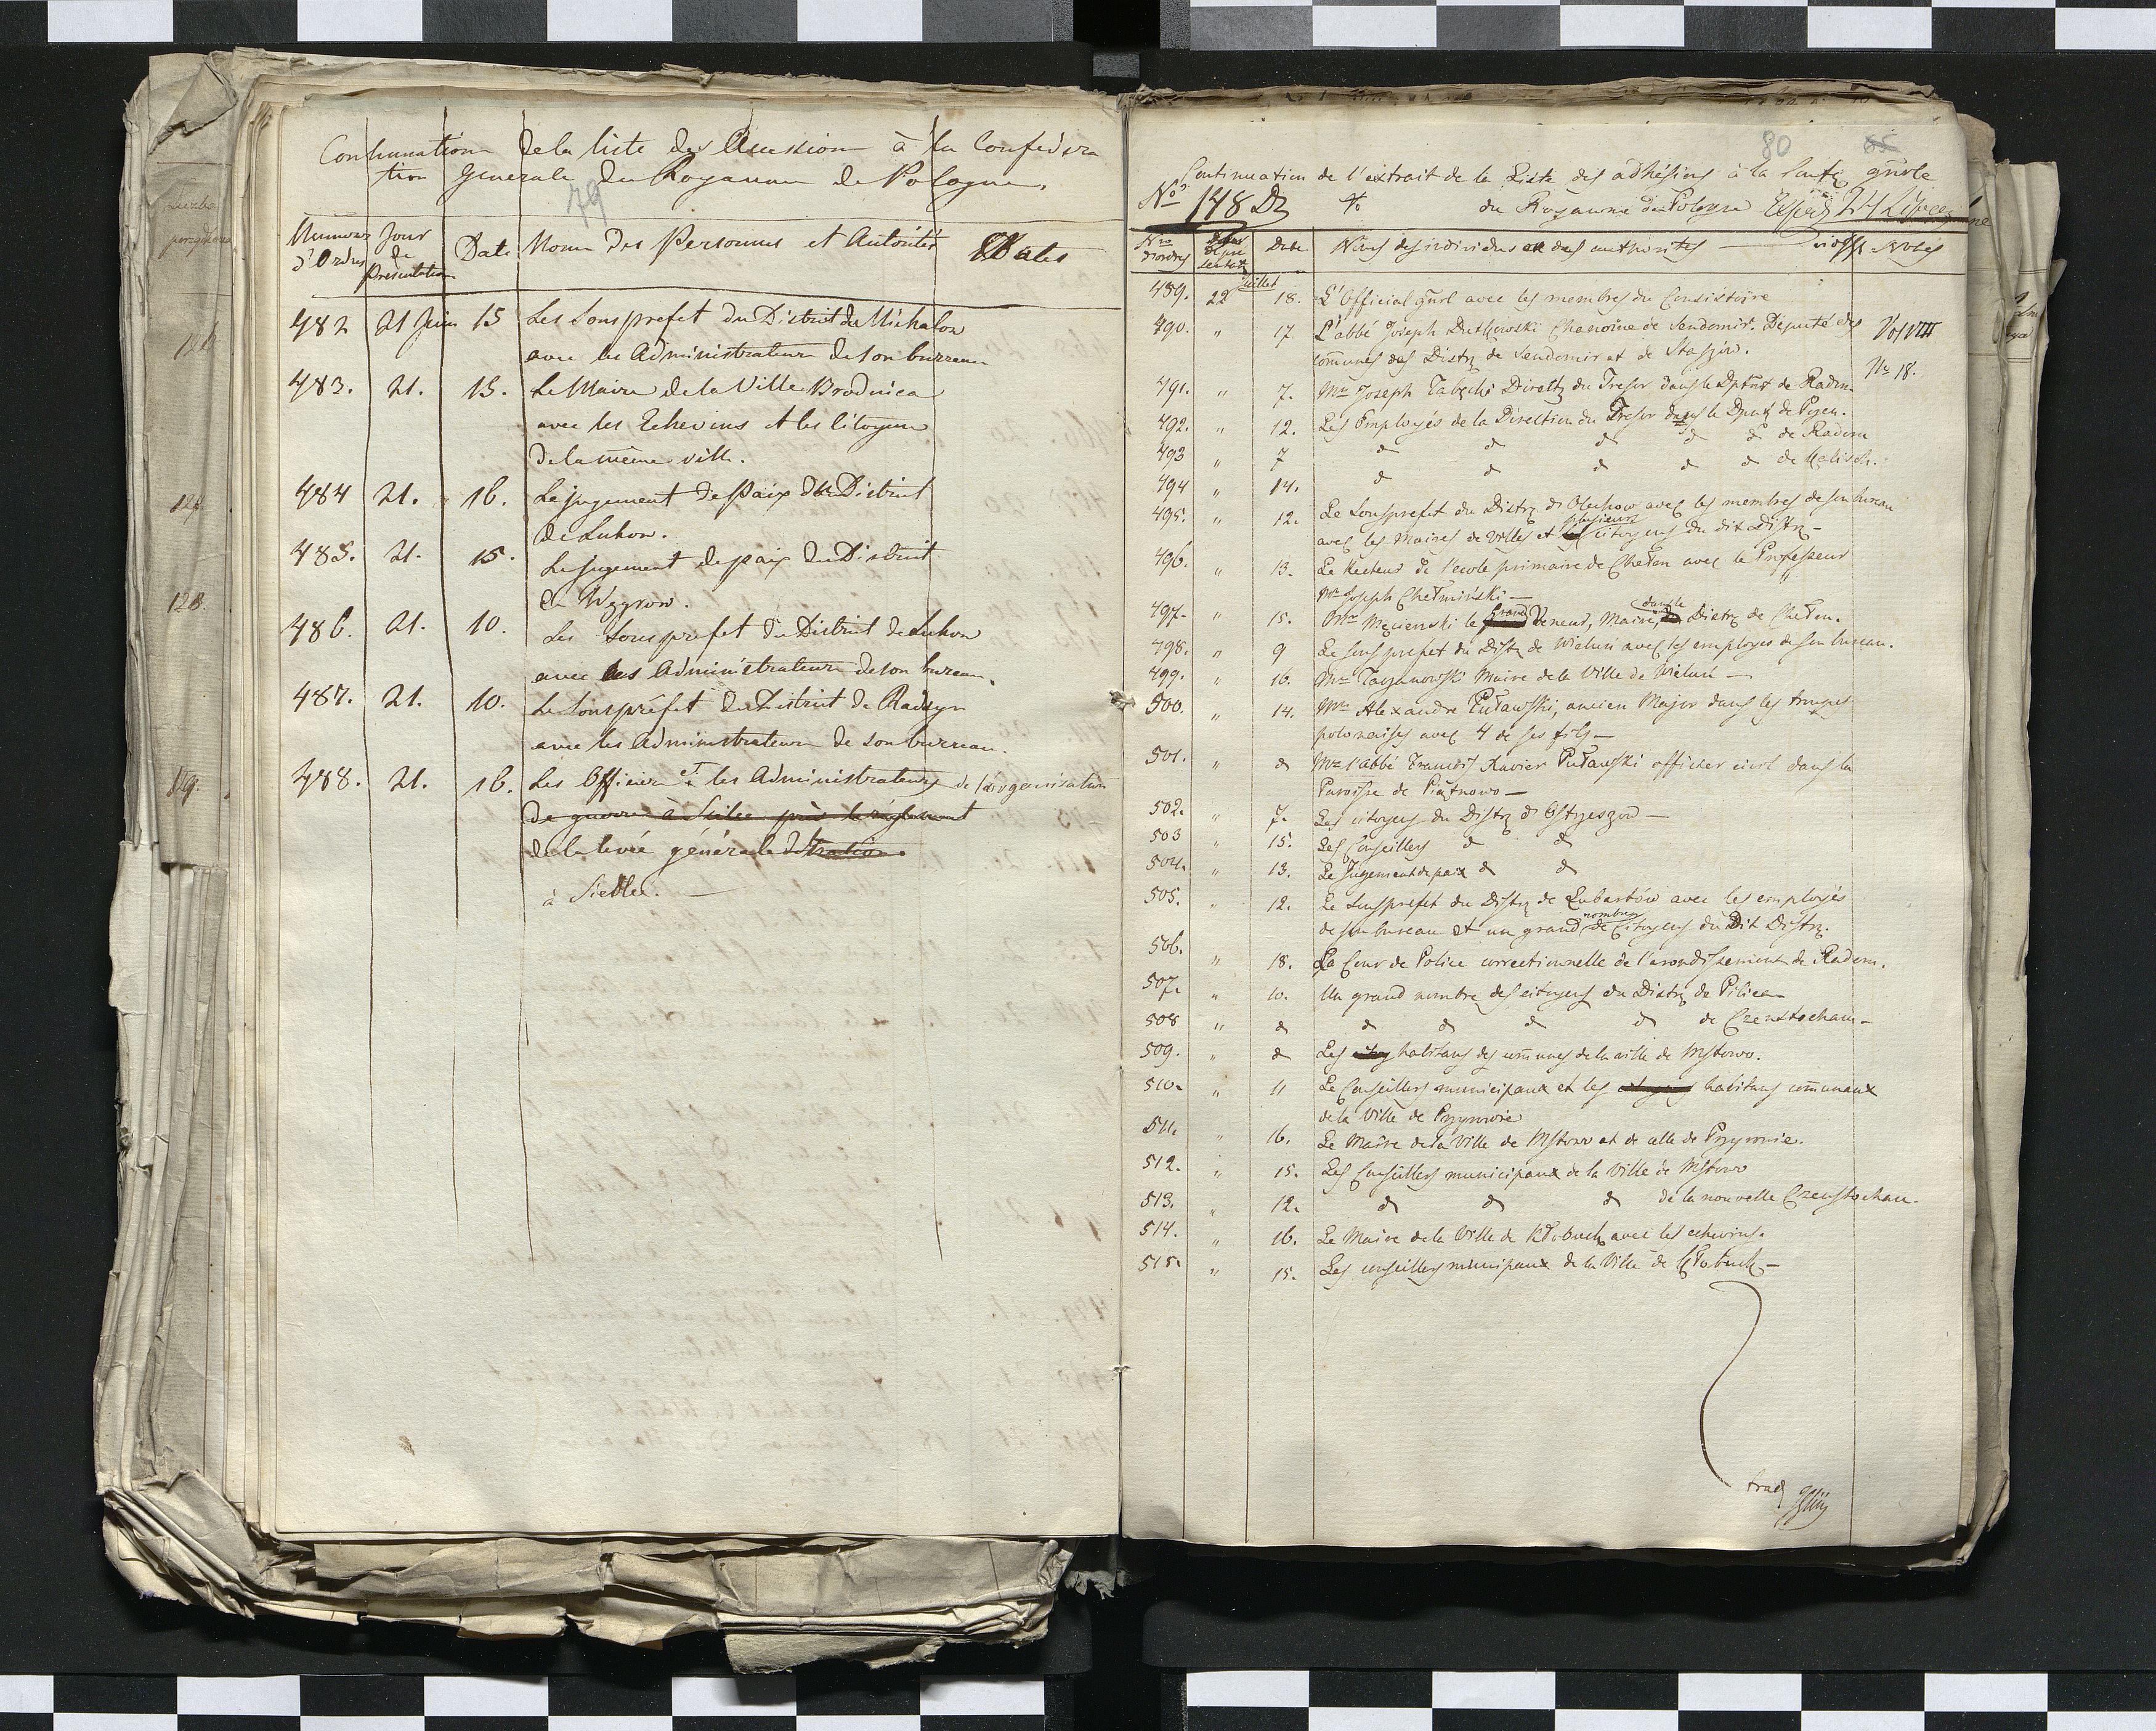 Continuation de la liste des Accession à la Confédéra
tion Generale du Royaume de Pologne.
79
Numeros d'Ordre Jour de Présentation Date Noms des Personnes et Autorités
482 21 Juin 15 Les Sousprefet du District de Michalow
avec les Administrateurs de son bureau
483. 21. 13. Le Maire de la Ville Brodnica
avec les Echevins et les Citoyens
de la même ville.
484 21. 16. Le jugement de Paix du District
de Lukow.
485. 21. 15. Le jugement de paix du District
de Węgrow.
486. 21. 10. Les Sousprefet du District de Lukow
avec les Administrateurs de son bureau.
487. 21. 10. Le Sousprefet du District de Radzyn
avec les Administrateurs de son bureau.
488. 21. 16. Les Officiers et les Administrateurs de l'organisation
de guerre à Siedlce
de la levée générale
à Siedlce.
127
128.
129.
80 65
Continuation de l'extrait de la Liste des adhésions à la Conf. gñrle
No 148 Dz du Royaume de Pologne
Nro d'ordres Date Noms des individus et des authorités Notes
Juillet
489. 22 18. L'Official gñrl avec les membres du Consistoire
490. " 17 L'abbé Joseph Chanoine de Sendomir. Député des Vol VIII
comunes des Distr de Sendomir et de Staszów. No 18.
491. " 7. Mr Joseph du Tresor dans le Dptmt de Radom
492. " 12. Les Employés de la Direction du Tresor dans le Dpmt de Posen.
493 " 7 d d d d d de Radom
494 " 14. d d d d d de Kalisch.
495. " 12. Le Sousprefet du Distr d'Olechow avec les membres de son bureau
avec les Maires de villes et plusieurs citoyens du dit Distr –
496. " 13. Le Recteur de l'ecole primaire de Chełm avec le Professeur
Mr Joseph Chełmiński –
497. " 15. Mr le grand Veneur, Maire, dans le Distr de Chełm.
498. " 9 Le sous prefet du Distr de Wieluń avec les employés de son bureau.
499. " 16. Mr Maire de la Ville de Wieluń –
500. " 14. Mr Alexandre Puławski, ancien Major dans les troupes
polonaises avec 4 de ses fils –
501. " d Mr l'abbé François Xavier Puławski officier civil dans la
Paroisse de Piątnowo –
502. " 7. Les citoyens du Distr d'Ostrzeszow –
503 " 15. Les Conseillers d d
504. " 13. Le Jugement de paix d d
505. " 12. Le Sousprefet du Distr de Lubartów avec les employés
de son bureau et un grand nombre de Citoyens du Dit Distr.
506. " 18. La Cour de Police correctionnelle de l'arondissement de Radom.
507. " 10. Un grand nombre des citoyens du Distr de Pilica
508 " d d d d d de Czenstochau –
509. " d Les habitans des comunes de la ville de Mstowo.
510. " 11 Le Conseillers municipaux et les habitans comunaux
de la Ville de Przyrowie
511. " 16. Le Maire de la Ville de Mstow et de celle de Przyrowie.
512. " 15. Les Conseillers municipaux de la Ville de Mstowo
513. " 12. d d d de la nouvelle Czenstochau.
514. " 16. Le Maire de la Ville de Kłobuck avec les echevins.
515. " 15. Les conseillers municipaux de la Ville de Kłobuck –
trad